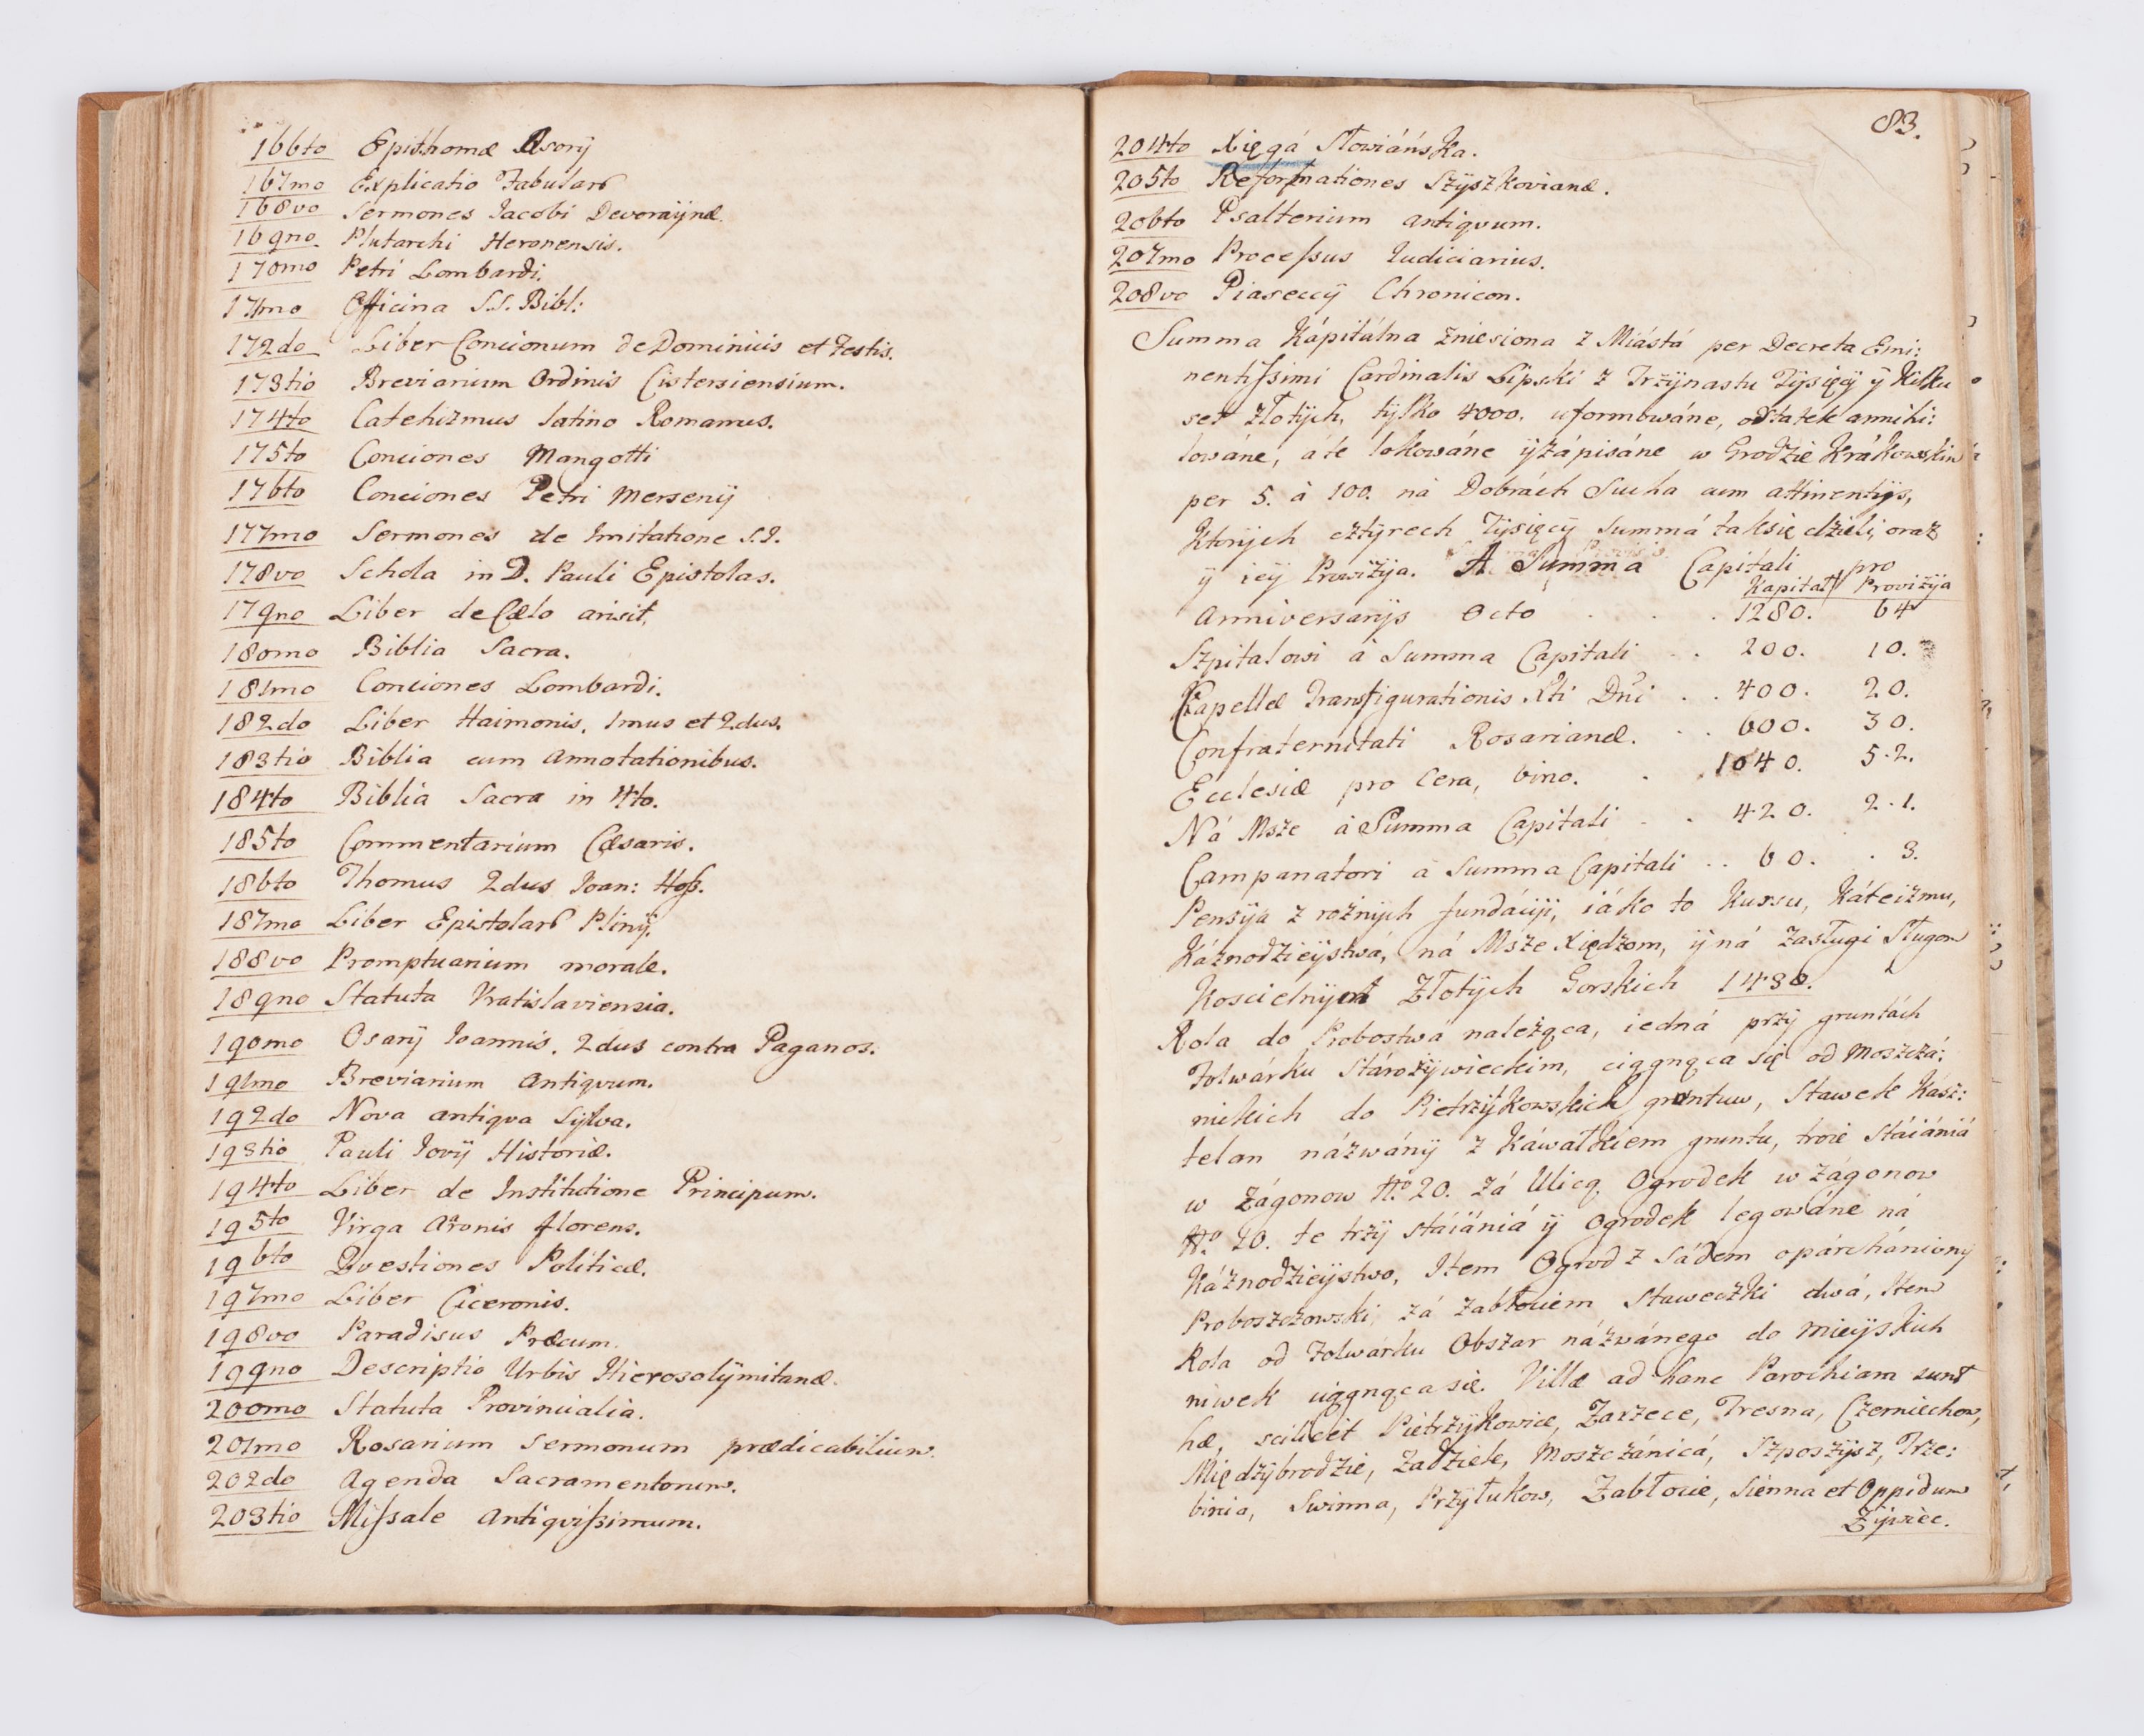 166to Epithomæ Asorÿ
167mo Explicatio Tabular
168vo Sermones Jacobi
169no Plutarchi Heronensis.
170mo Petri Lombardi.
171mo Officina S.S. Bibl:
172do Liber Concionum de Dominicis et Festis.
173tio Breviarium Ordinis Cistersiensium.
174to Catehizmus latino Romanus.
175to Conciones Mangotti
176to Conciones Petri Mersenÿ
177mo Sermones de Imitatione S.J.
178vo Schola in D. Pauli Epistolas.
179no Liber de Cælo arisit.
180mo Biblia Sacra.
181mo Conciones Lombardi.
182do Liber Haimonis, 1mus et 2dus.
183tio Biblia cum Annotationibus.
184to Biblia Sacra in 4to.
185to Commentarium Cæsaris.
186to Thomus 2dus Joan: Hoſs.
187mo Liber Epistolar Plinÿ.
188vo Promptuarium morale.
189no Statuta Vratislaviensia.
190mo Osarÿ Joannis, 2dus contra Paganos.
191mo Breviarium Antiqvum.
192do Nova antiqva Sÿlva.
193tio Pauli Jovÿ Historiæ.
194to Liber de Institutione Principum.
195to Virga Aronis florens.
196to Qvestiones Politicæ.
197mo Liber Ciceronis.
198vo Paradisus Præcum.
199no Descriptio Urbis Hierosolÿmitanæ.
200mo Statuta Provincialia.
201mo Rosarium Sermonum prædicabilium.
202do Agenda Sacramentorum.
203tio Miſsale Antiqviſsimum.
83.
204to Xięgá Słowiáńska.
205to Reformationes Szÿszkovianæ.
206to Psalterium antiqvum.
207mo Proceſsus Iudiciarius.
208vo Piaseccÿ Chronicon.
Summa Kápitálna zniesiona z Miástá per Decreta Emi:
nentiſsimi Cardinalis Lipski z Trzÿnastu Tÿsięcÿ ÿ kilku
set złotÿch, tÿlko 4000. uformowáne, ostatek annihi:
lowáne, á te lokowáne ÿ zápisáne w Grodzie Krákowskim
per 5. à 100. ná Dobrách Sucha cum attinentijs,
Ktorÿch cztÿrech Tÿsięcÿ Summá tak się dzieli, oraz
ÿ ieÿ Prowizÿa. A Summa Capitali pro
Kapitał Provizÿa
Anniversarijs Octo . . . 1280. 64
Szpitalowi à Summa Capitali . . 200. 10.
Capellæ Transfigurationis Xti Dni . . 400. 20.
Confraternitati Rosarianæ. . . 600. 30.
Ecclesiæ pro Cera, Vino. . . 1040. 52.
Ná Msze à Summa Capitali . . 420. 21.
Campanatori à Summa Capitali . . 60. . 3.
Pensÿa z rożnÿch fundácÿi, iáko to Kursu, Káteizmu,
Káznodzieÿstwá, ná Msze Xiędzom, ÿ ná zasługi Sługow
Koscielnÿch Złotÿch Gorskich 1430.
Rola do Probostwá należąca, iedná przÿ gruntách
Folwárku Stárożÿwieckim, ciągnąca się od Moszczá:
nickich do Pietrzÿkowskich gruntuw, Stawek Kasz:
telan názwánÿ z Káwałkiem gruntu, troie Stáiániá
w Zágonow No 20. Zá Ulicą Ogrodek w zágonow
No 20. te trzÿ stáiániá ÿ Ogrodek legowáne ná
Káznodzieÿstwo, Item Ogrod z Sádem opárchánionÿ
Proboszczowski, zá Zabłociem Staweczki dwá, Item
Rola od Folwárku Obszar názwánego do Mieÿskich
niwek ciągnąca się. Villæ ad hanc Parochiam sunt
hæ, scilicet Pietrzÿkowice, Zarzece, Tresna, Czerniechow,
Międzÿbrodzie, Zadziele, Moszczánicá, Szposzÿsz, Trze:
binia, Swinna, Przÿłukow, Zabłocie, Sienna et Oppidum
Zÿwiec.